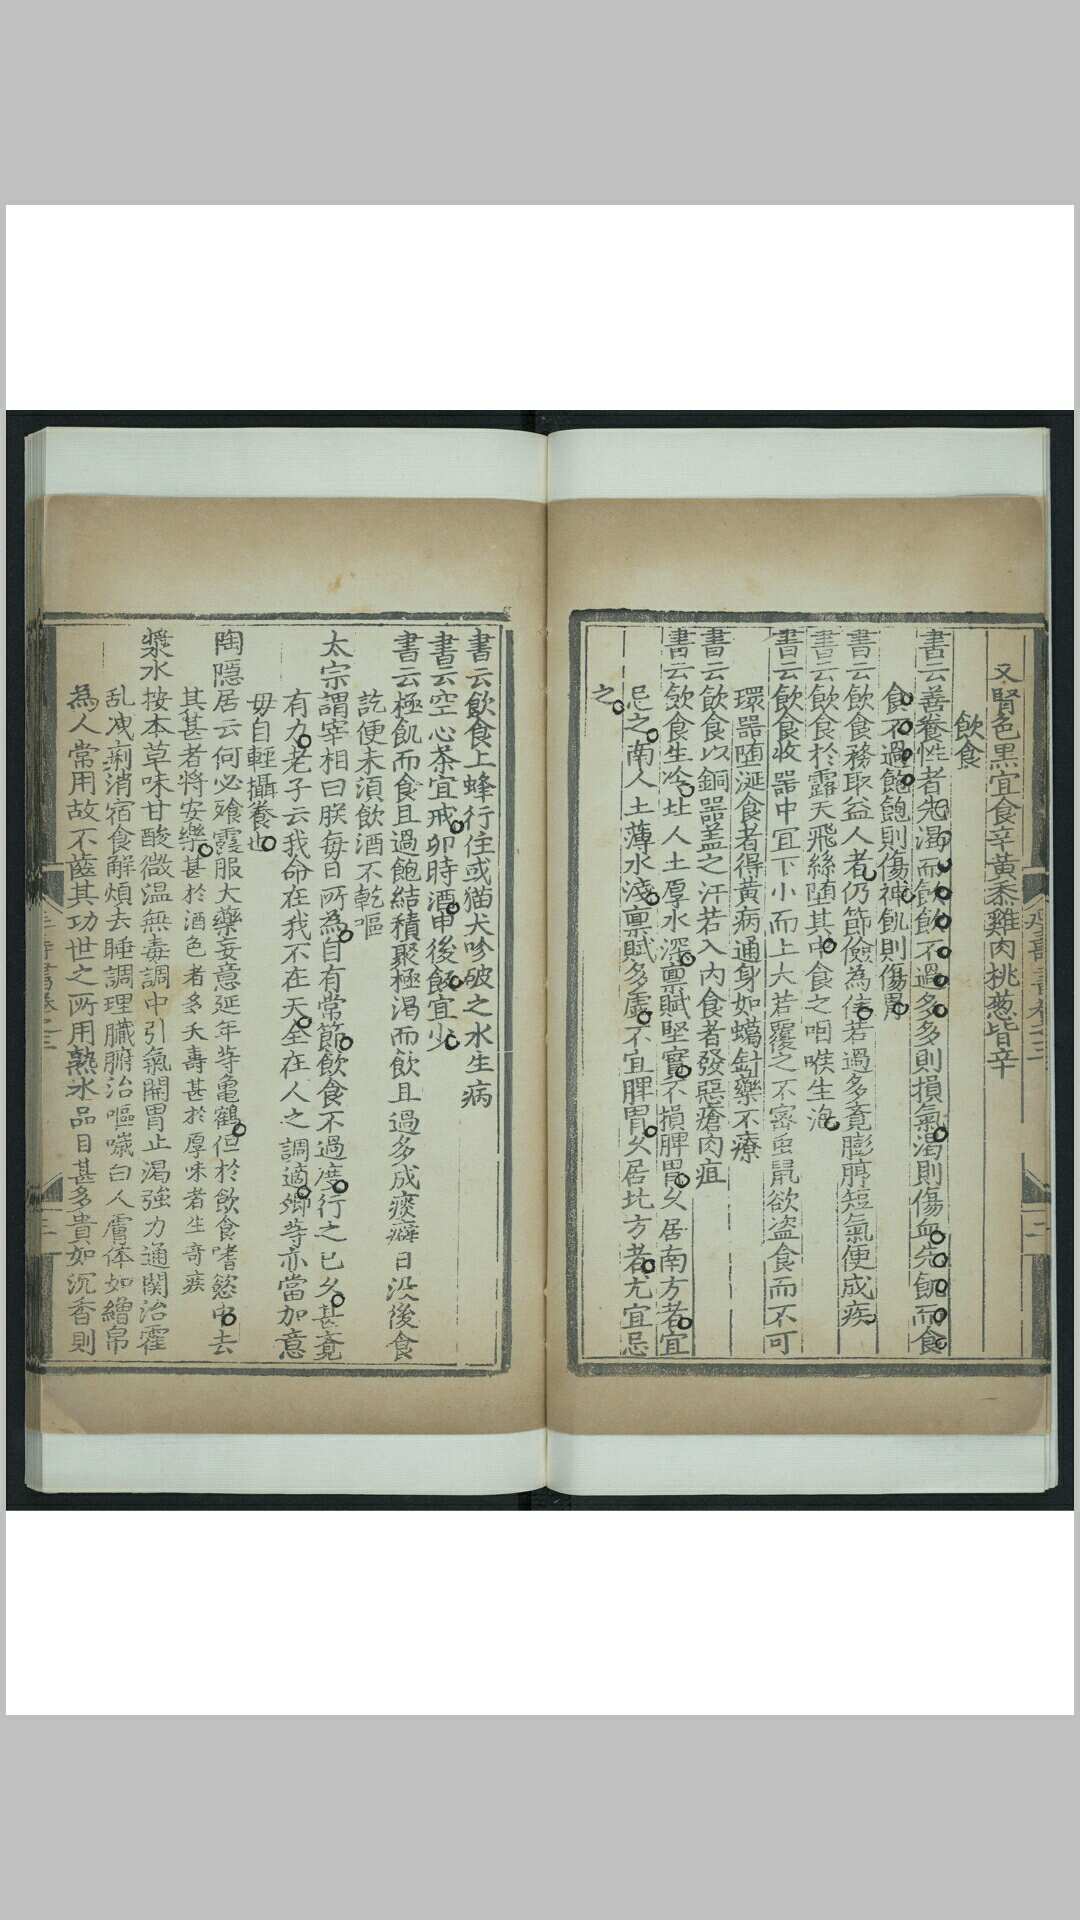 又腎色黑宜食辛黃黍雞肉桃葱皆辛
飲食
書云善養性者先渴而飲飲不過多多則損氣渴則傷血先飢而食
食不過飽飽則傷神飢則傷胃
書云飲食務取益人者仍節儉為佳若過多竟膨脝短氣便成疾
書云飲食於露天飛絲堕其中食之咽喉生泡
書云飲食收器中宜下小而上大若覆之不宻虫鼠欲盗食而不可
環器堕涎食者得黃病通身如蠟針藥不療
書云飲食以銅器盖之汗若入内食者發惡瘡肉疽
書云飲食生冷北人土厚水深禀賦堅實不損脾胃乆居南方者宜
忌之南人土薄水淺禀賦多虛不宜脾胃乆居北方者尤宜忌
之
書云飲食上蜂行住或猫犬吵破之水生病
書云空心茶宜戒卯時酒申後飯宜少
書云極飢而食且過飽結積聚極渴而飲且過多成痰癖日没後食
訖便未須飲酒不乾嘔
太宗謂宰相曰朕每日所為自有常節飲食不過度行之已乆甚竟
有力老子云我命在我不在天全在人之調適卿等亦當加意
毋自輕攝養也
陶隱居云何必飡霞服大藥妄意延年等龜鶴但於飲食嗜慾中去
其甚者將安樂甚於酒色者多夭壽甚於厚味者生奇疾
漿水按本草味甘酸微温無毒調中引氣開胃止渴強力通関治霍
乱洩痢消宿食解煩去睡調理臟腑治嘔噦白人膚体如繒帛
為人常用故不齒其功世之所用熟水品目甚多貴如沉香則